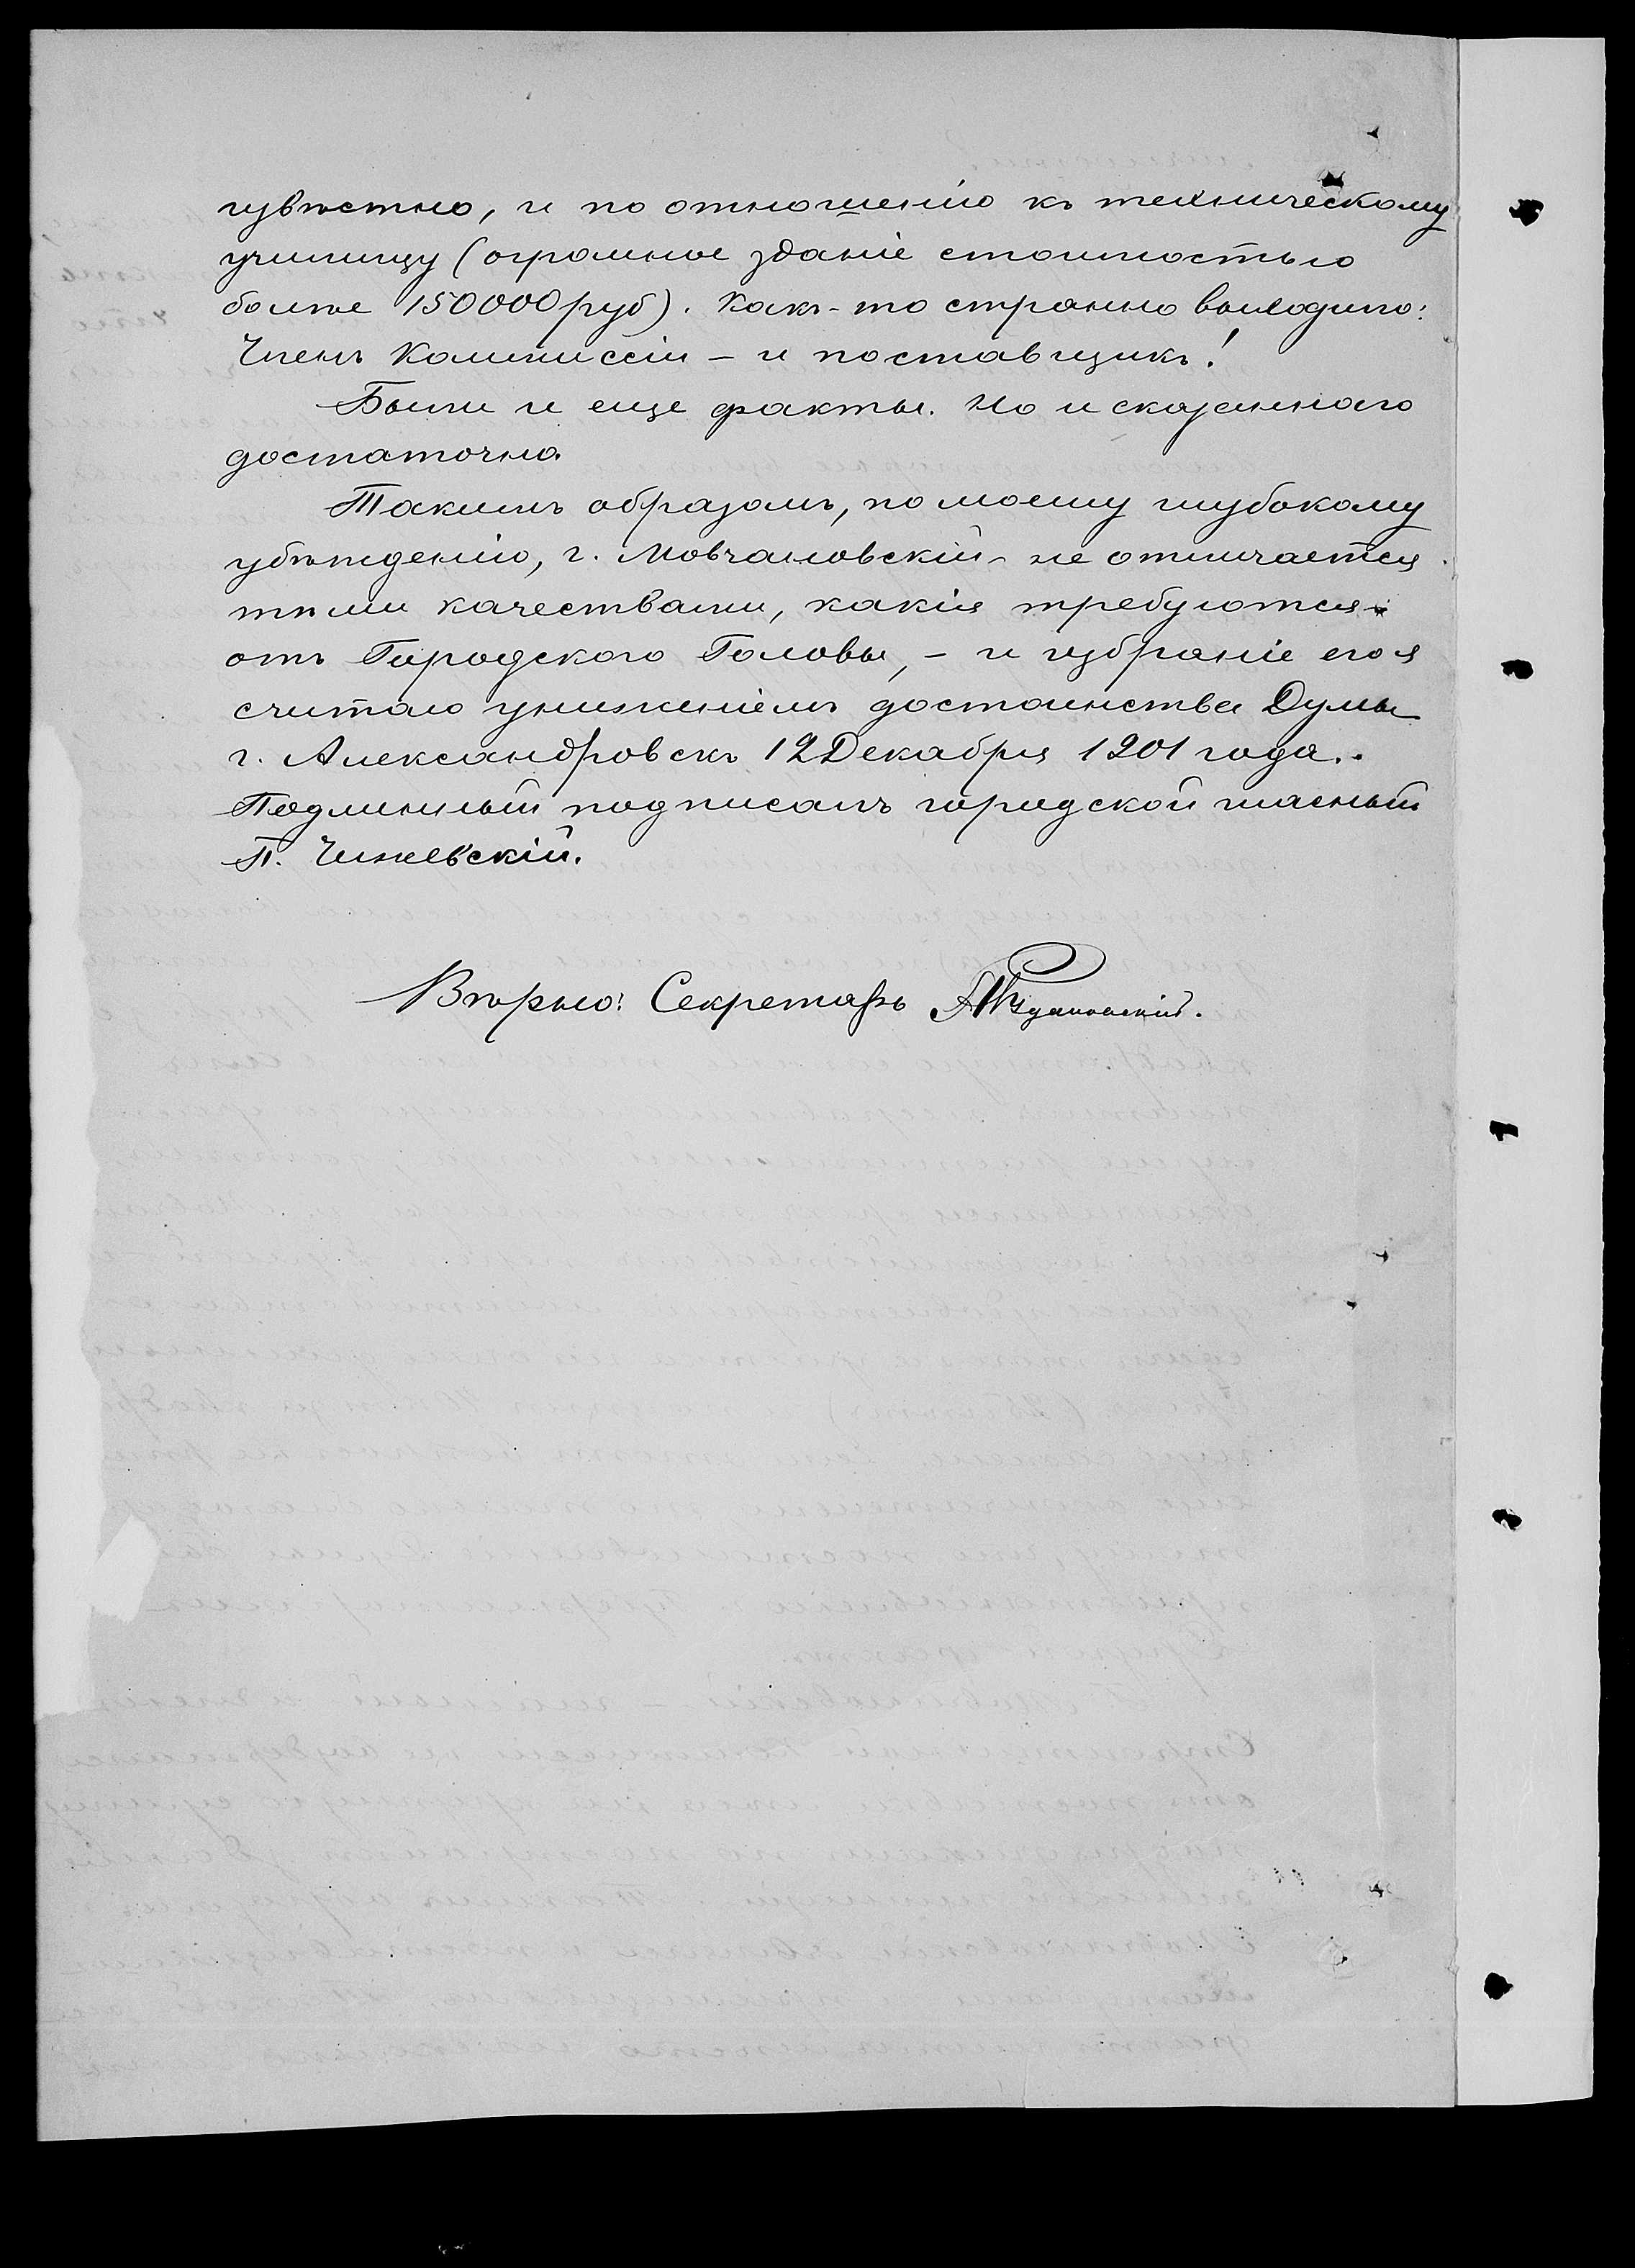 извѣстно, и по отношенію къ техническому
училищу (огромное зданіе стоимостью
болѣе 150000 руб). Какъ-то странно выходило:
Членъ Коммиссіи – и поставщикъ!
Были и еще факты. Но и сказаннаго
достаточно.
Такимъ образомъ, по моему глубокому
убѣжденію, г. Мовчановскій не отличается
тѣми качествами, какія требуются
отъ Городского Головы, – и избраніе его я
считаю униженіемъ достоинства Думы
г. Александровскъ 12 Декабря 1901 года.
Подлинный подписалъ городской гласный
П. Чижевскій.
Вѣрно: Секретарь